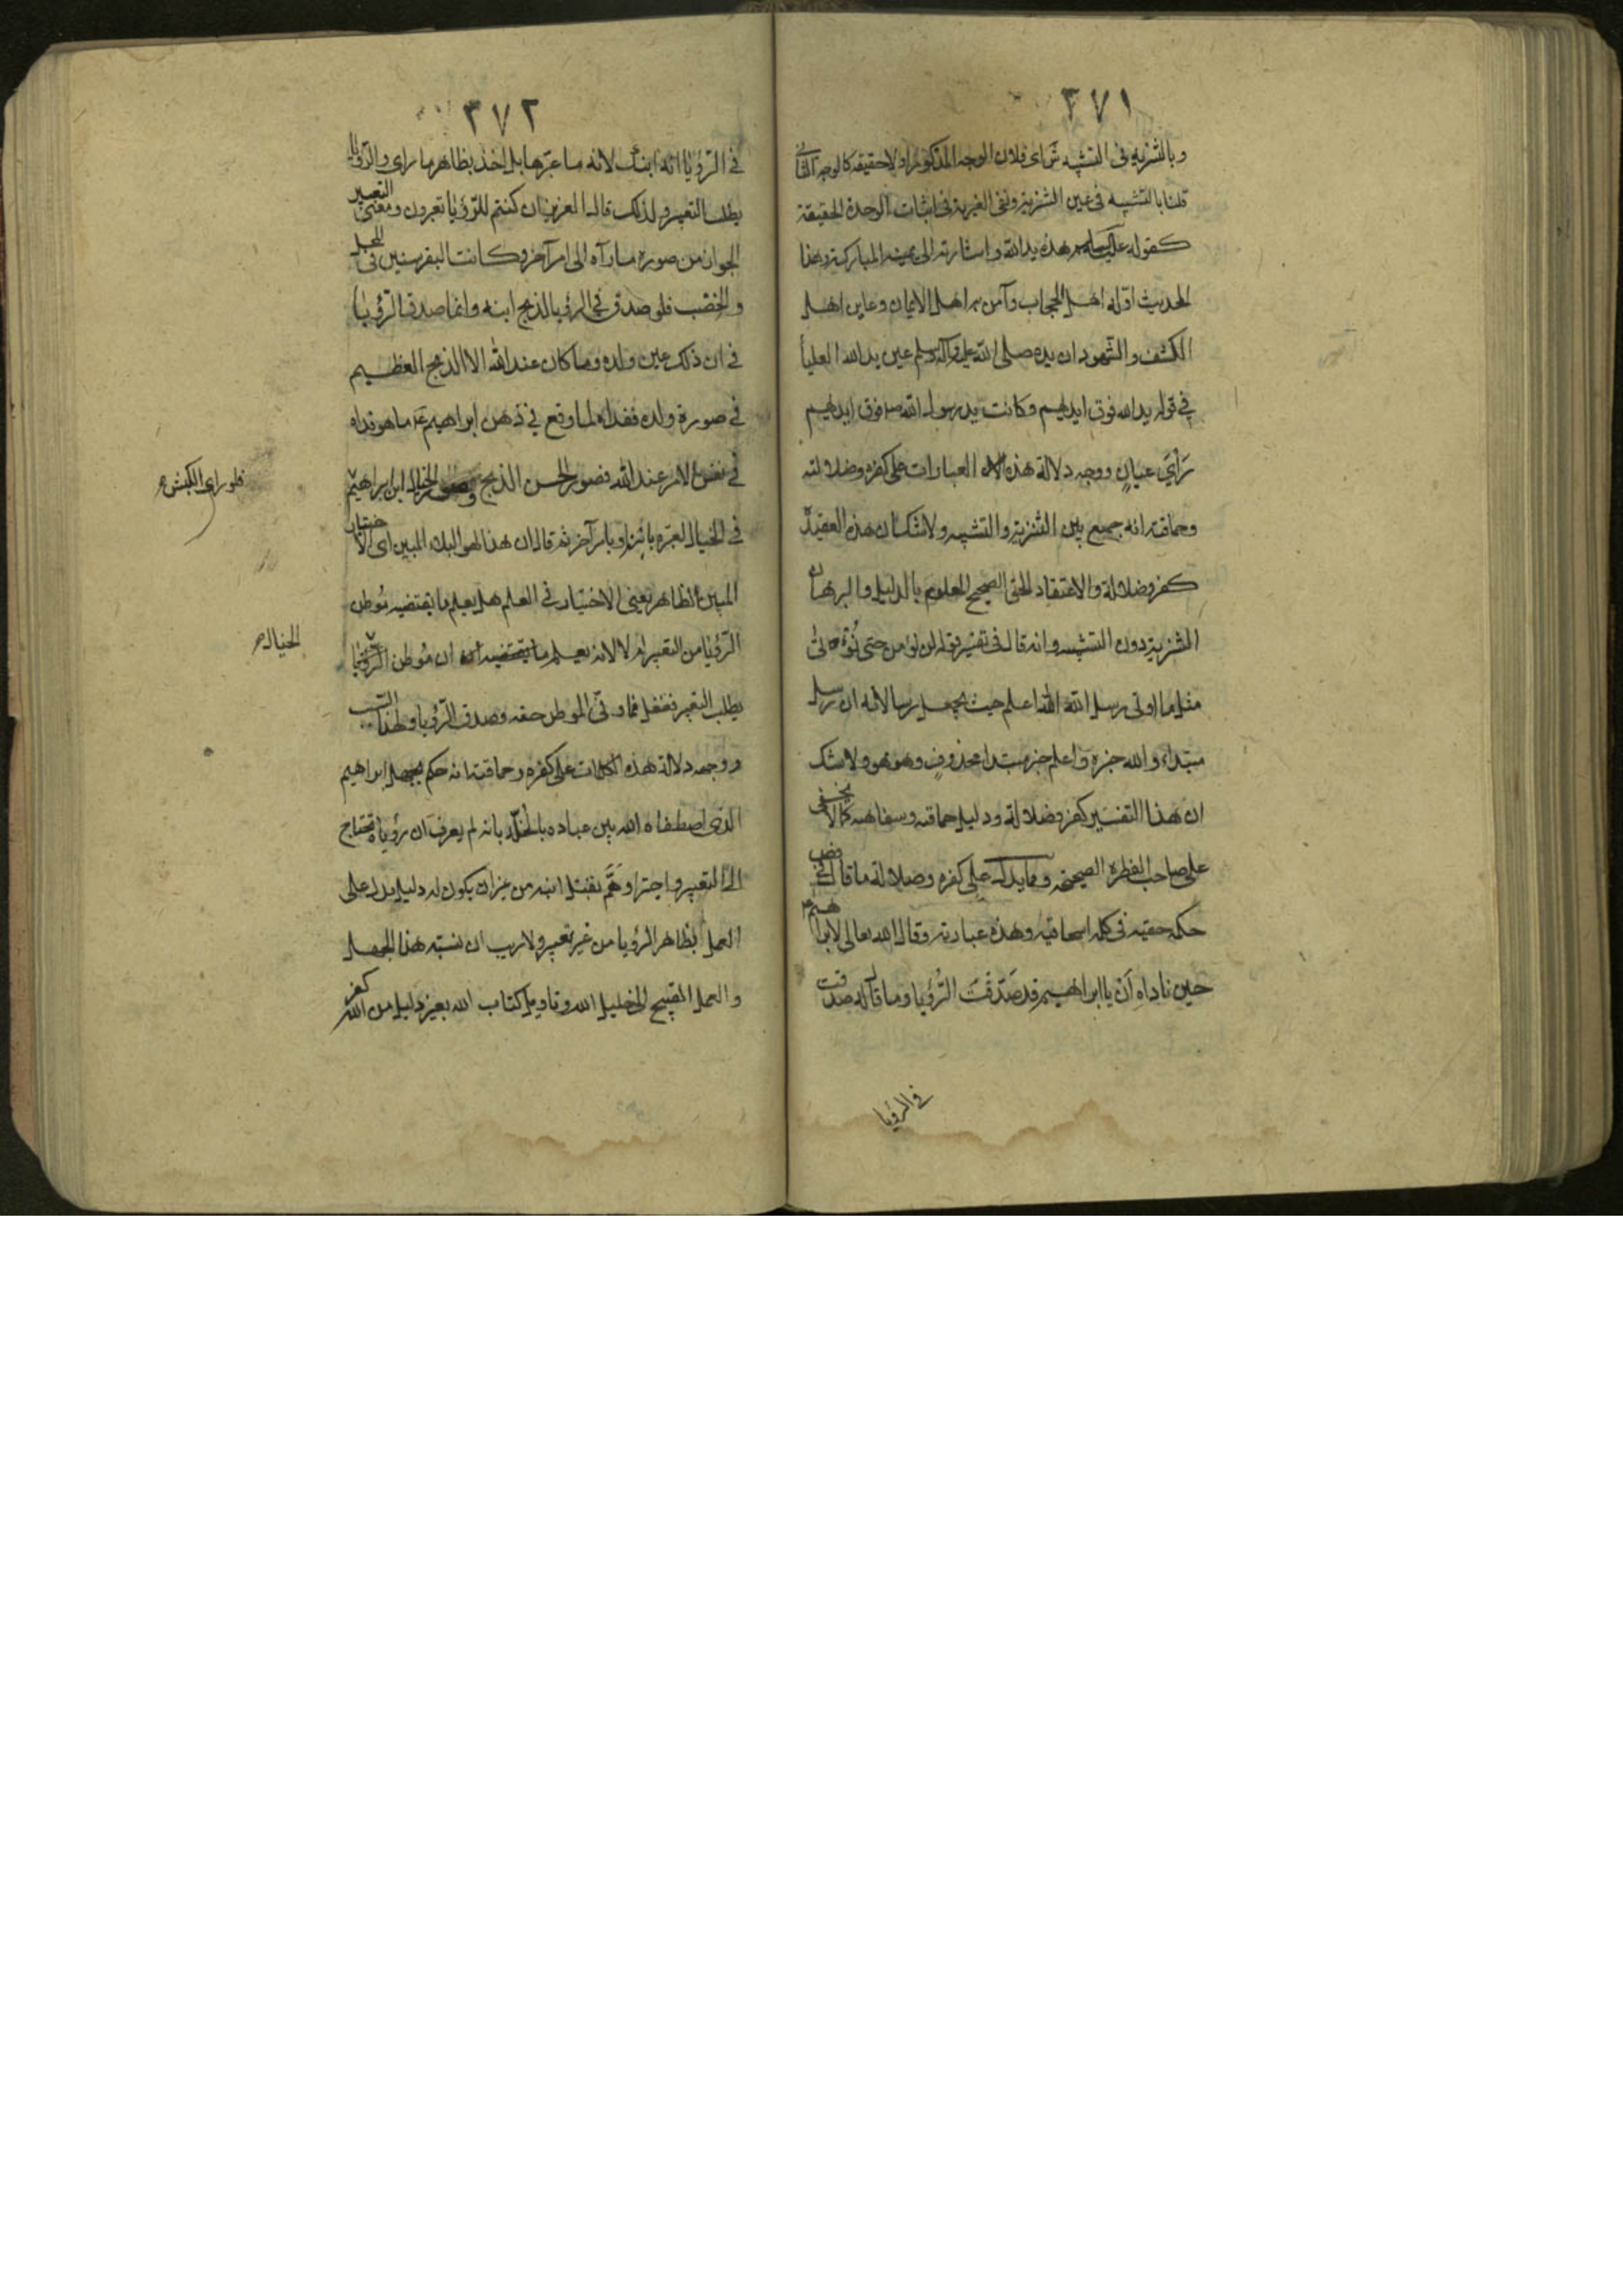 ٣٧١
وبالتنزيه فى التشبيه اى فلان الوجه المذكور مراد لا حقيقة كالوجه الثانى
قلنا بالتشبيه فى عين التنزيه ونفى الغيرية فى اثبات الوحدة الحقيقة
كقوله عليه السلام هذه يد الله واشارته الى يمينه المباركة وهذا
الحديث اوّله اهل الحجاب وآمن به اهل الايمان وعاين اهل
الكشف والشهود ان يده صلى الله عليه وآله وسلم عين يد الله العليا
فى قوله يد الله فوق ايديهم وكانت يد رسول الله ص فوق ايديهم
رَأىَ عيانٍ ووجه دلالة هذه العبارات على كفره وضلالته
وحماقته انه جميع بين التنزيه والتشبيه ولا شك ان هذه العقيدة
كفر وضلالة والاعتقاد الحق الصحيح المعلوم بالدليل والبرهان
التنزيه دون التشبيه وانه قال فى تفسير قوله لن نؤمن حتى نُؤتى
مثل ما اوتى رسل الله الله اعلم حيث يجعل رسالاته ان رسل
مبتداء والله خبره واعلم خبر مبتدا محذوف وهو هو ولا شك
ان هذا التفسير كفر وضلالة ودليل حماقته وسفاهته كما لا يخفى
على صاحب الفطرة الصحيحة ومما يدل على كفره وضلالة ما قال فى فص
حكمة حقية فى كلمة اسحاقية وهذه عبادته وقال الله تعالى لابراهيم
حين ناداه اَنْ يا ابراهيم قد صَدّقْتَ الرُؤيا وما قال له صدقت
فى الرؤيا
٣٧٢
فى الرّؤيا انه ابنك لانه ما عبّرها بل اخذ بظاهر ما راى والرّؤيا
يطلب التعبير ولذلك قال العزيز ان كنتم للرّؤيا تعبرون ومعنى التعبير
الجواز من صورة ما رآه الى امر آخر وكانت البقر سنين فى المحل
والخصب فلو صدق فى الرؤيا لذبح ابنه وانما صدق الرّؤيا
فى ان ذلك عين ولده وما كان عند الله الا الذبح العظيم
فى صورة ولده ففداه لما وقع فى ذهن ابراهيم ع ما هو فداه
فى نفس الامر عند الله فصور الحس الذبح وصور الخيال ابن ابراهيم
فلو راى الكبش
فى الخيال لعبّره بابنه او بامر آخر ثم قال ان هذا لهو البلاء المبين اى الاختبار
المبين الظاهر يعنى الاختبار فى العلم هل يعلم ما يقتضيه موطن
الرّؤيا من التعبير ام لا لانه يعلم ان موطن الرّؤيا
الخيال
يطلب التعبير فغفل فما وفى الموطن حقه وصدق الرّؤيا ولهذا السبب
ووجه دلالة هذه الكلمات على كفره وحماقته انه حكم بجهل ابراهيم
الذى اصطفاه الله بين عباده بالخلّة بانه لم يعرف ان رؤياه تحتاج
الى التعبير واجترا وهَمَّ بقتل ابنه من غير ان يكون له دليل يدل على
العمل بظاهر الرؤيا من غير تعبير ولا ريب ان نسبة هذا الجهل
والعمل القبيح الى خليل الله وتاويل كتاب الله بغير دليل من الله كفر